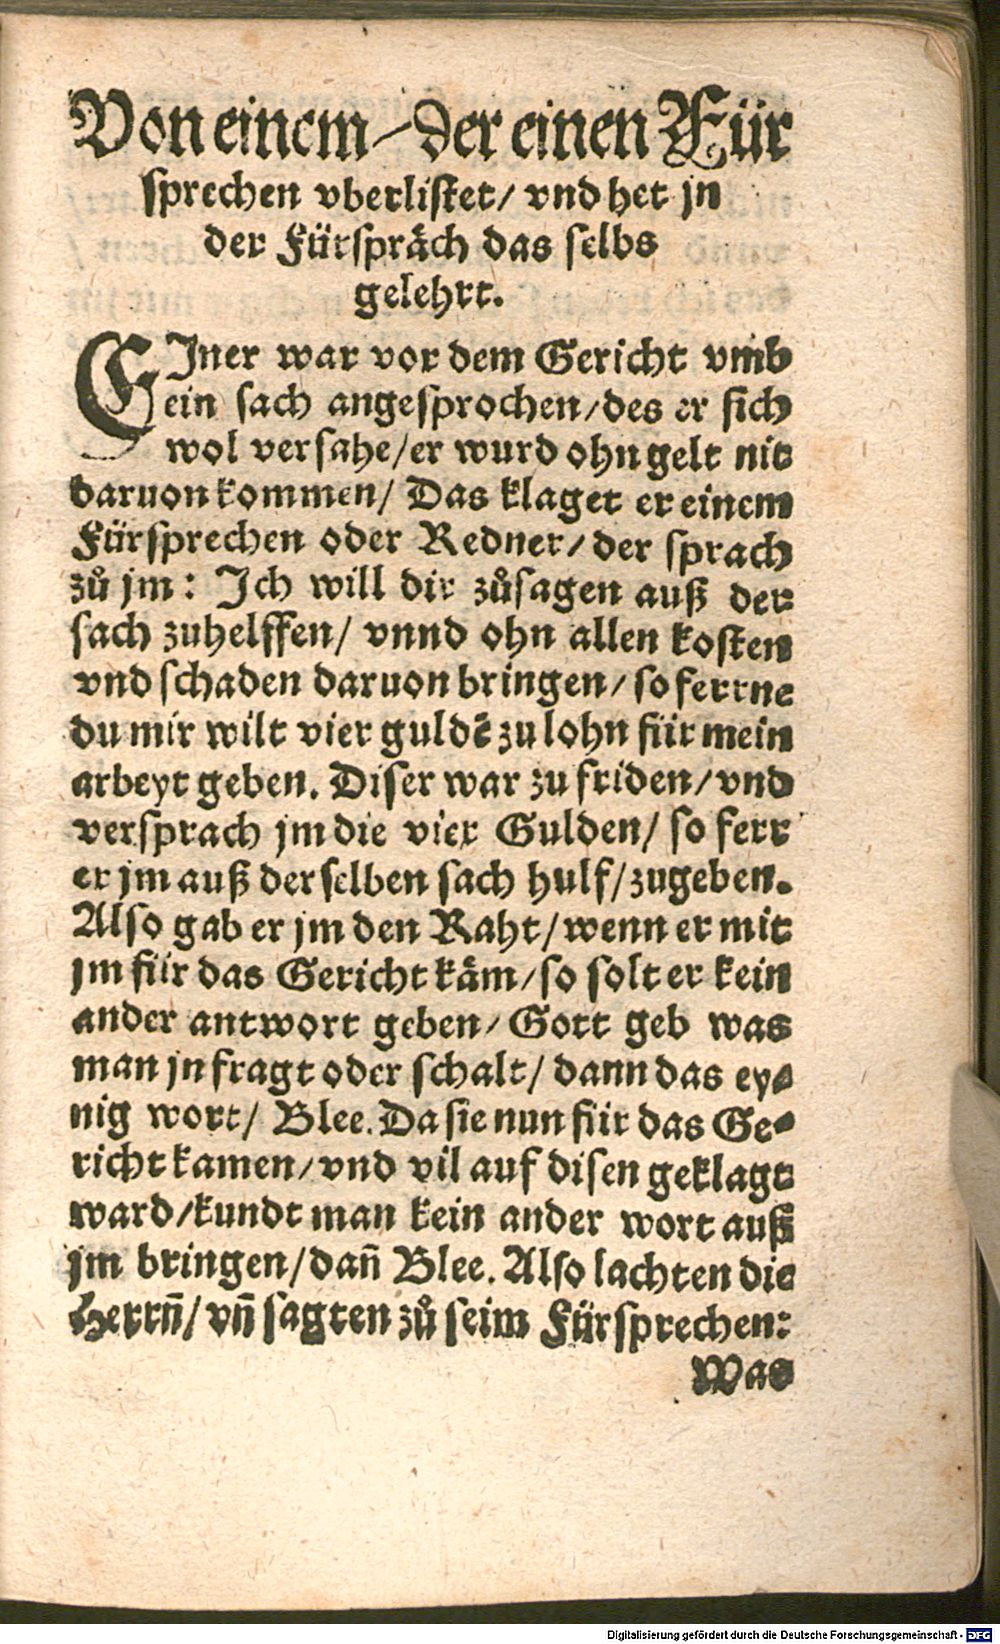 Von einem / der einen Für
sprechen vberlistet / vnd het jn
der Fürspräch das selbs
gelehrt.
EJner war vor dem Gericht vmb
ein sach angesprochen / des er sich
wol versahe / er wurd ohn gelt nit
daruon kommen / Das klaget er einem
Fürsprechen oder Redner / der sprach
zů jm: Jch will dir zůsagen auß der
sach zuhelffen / vnnd ohn allen kosten
vnd schaden daruon bringen / so ferrne
du mir wilt vier guldē zu lohn für mein
arbeyt geben. Diser war zu friden / vnd
versprach jm die vier Gulden / so ferr
er jm auß der selben sach hulf / zugeben.
Also gab er jm den Raht / wenn er mit
jm für das Gericht käm / so solt er kein
ander antwort geben / Gott geb was
man jn fragt oder schalt / dann das ey⸗
nig wort / Blee. Da sie nun für das Ge⸗
richt kamen / vnd vil auf disen geklagt
ward / kundt man kein ander wort auß
jm bringen / dañ Blee. Also lachten die
Herrñ / vñ sagten zů seim Fürsprechen:
Was
Digitalisierung gefördert durch die Deutsche Forschungsgemeinschaft - DFG